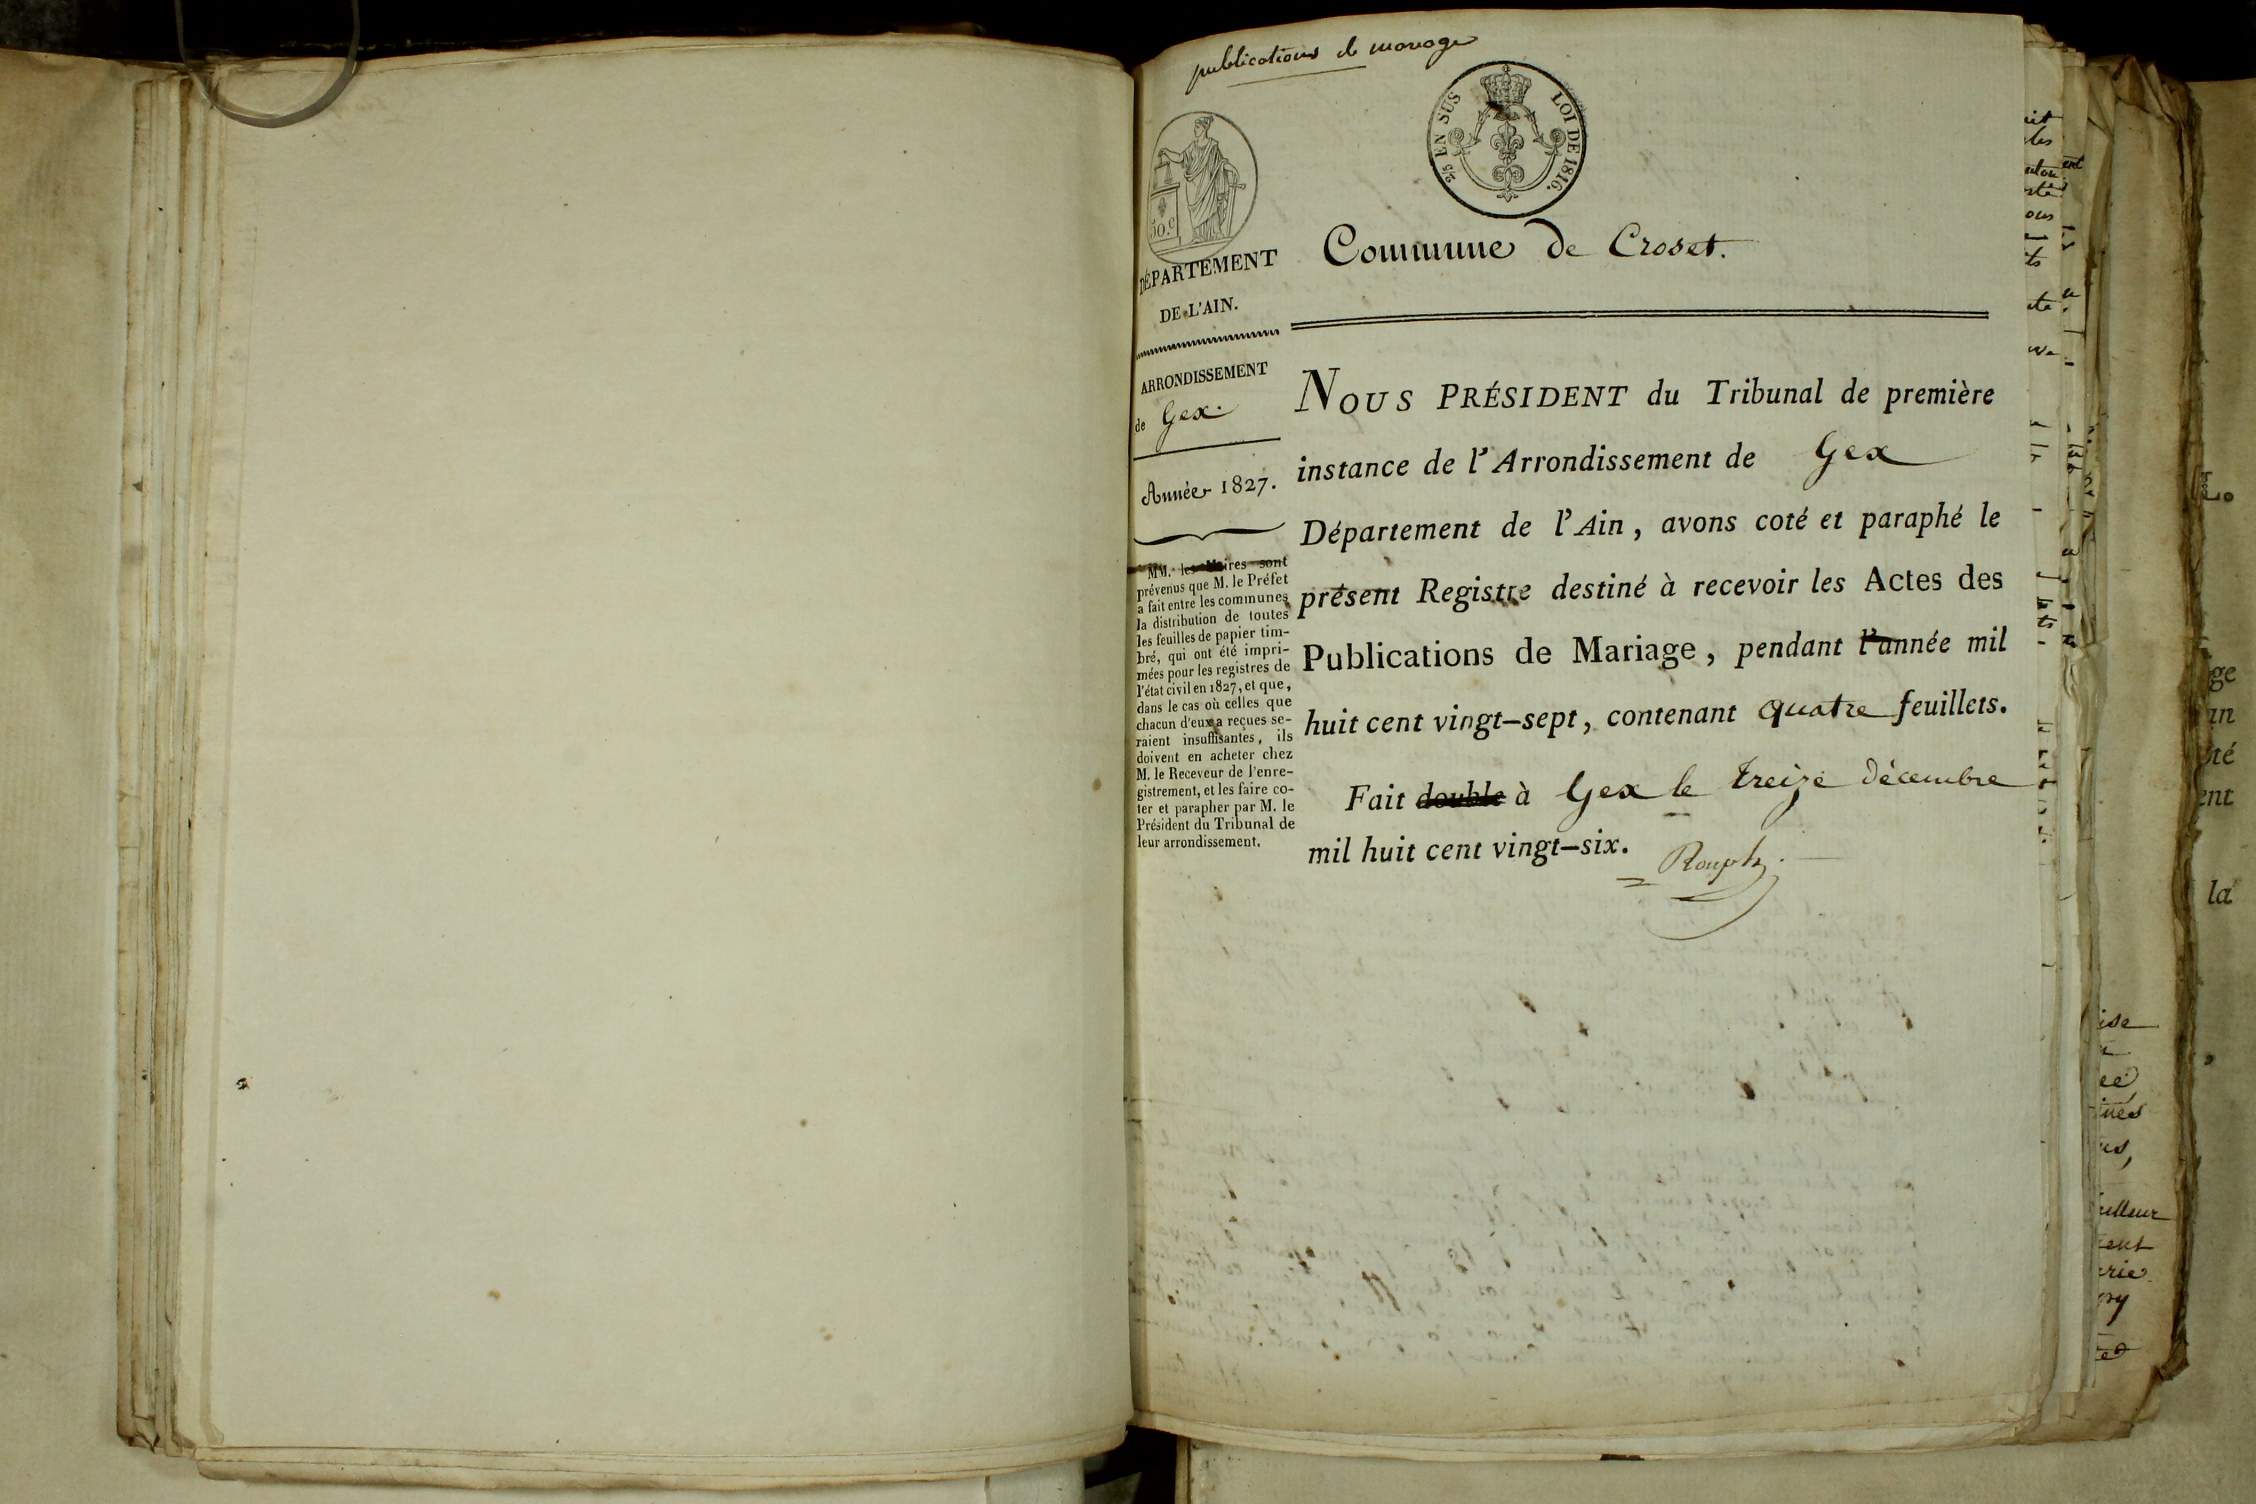 publications de mariage
2/5 EN SUS LOI DE 1816.
50 c
DÉPARTEMENT
DE L'AIN.
ARRONDISSEMENT
de Gex.
Année 1827.
MM. les Maires sont
prévenus que M. le Préfet
a fait entre les communes
la distribution de toutes
les feuilles de papier tim-
bré, qui ont été impri-
mées pour les registres de
l'état civil en 1827, et que,
dans le cas où celles que
chacun d'eux a reçues se-
raient insuffisantes, ils
doivent en acheter chez
M. le Receveur de l'enre-
gistrement, et les faire co-
ter et parapher par M. le
Président du Tribunal de
leur arrondissement.
Commune de Croset.
NOUS PRÉSIDENT du Tribunal de première
instance de l'Arrondissement de Gex
Département de l'Ain, avons coté et paraphé le
présent Registre destiné à recevoir les Actes des
Publications de Mariage, pendant l'année mil
huit cent vingt-sept, contenant quatre feuillets.
Fait double à Gex le treize décembre
mil huit cent vingt-six.